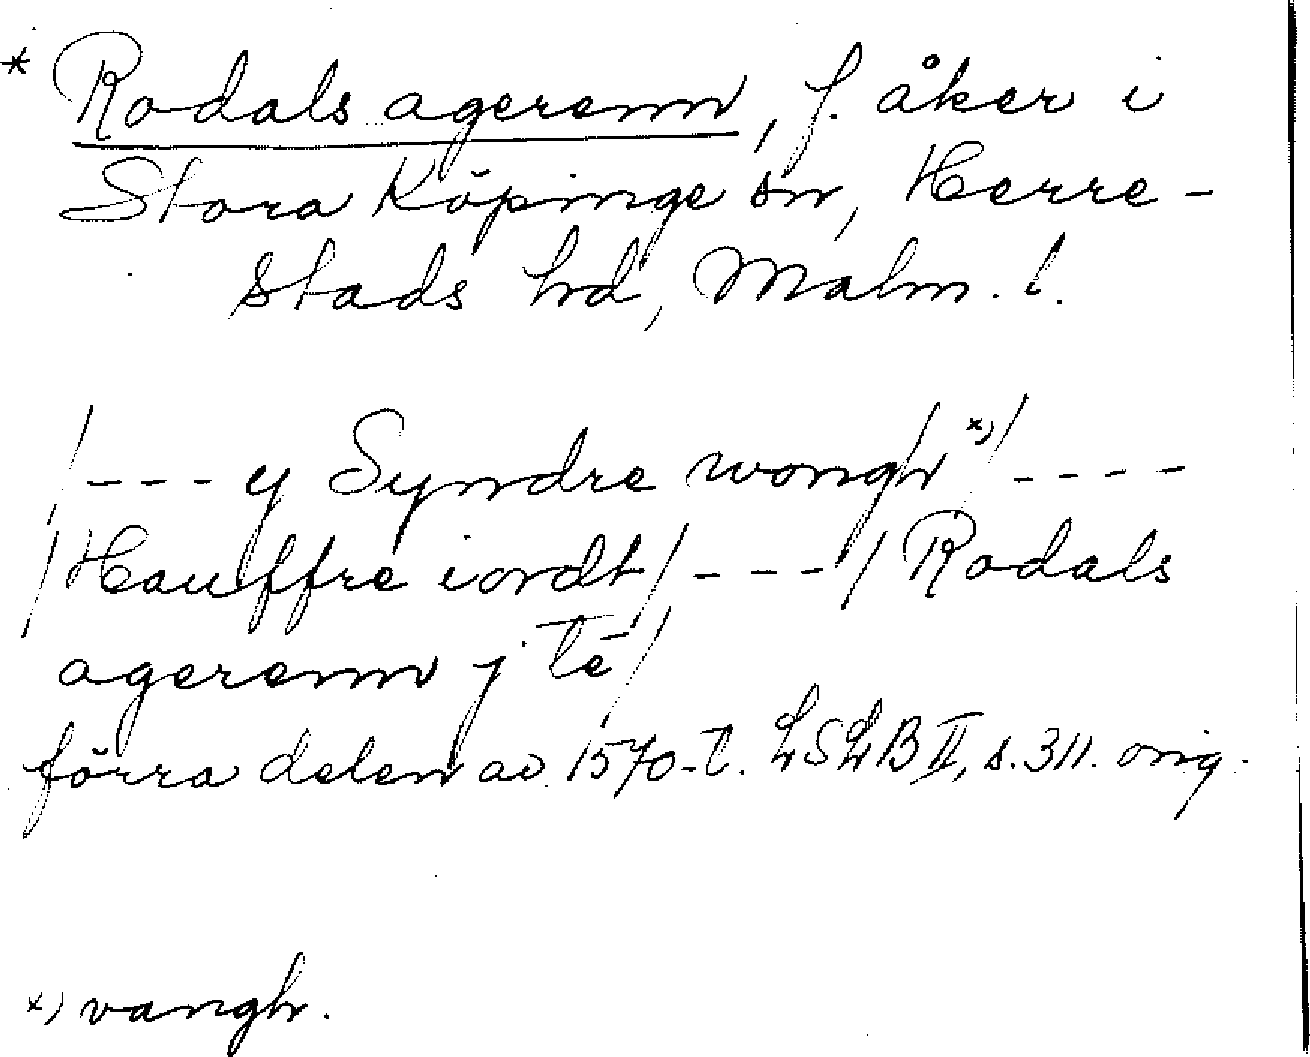 * Rodals agerenn, f. åker i
Stora Köpinge sn, Herre-
stads hd, Malm. l.
/--- y Syndre wongh x)/----
/Hauffre iordt/---/ Rodals
agerenn j te/
förra delen av 1570-t. LSLB II, s. 311. orig.
x) vangh.